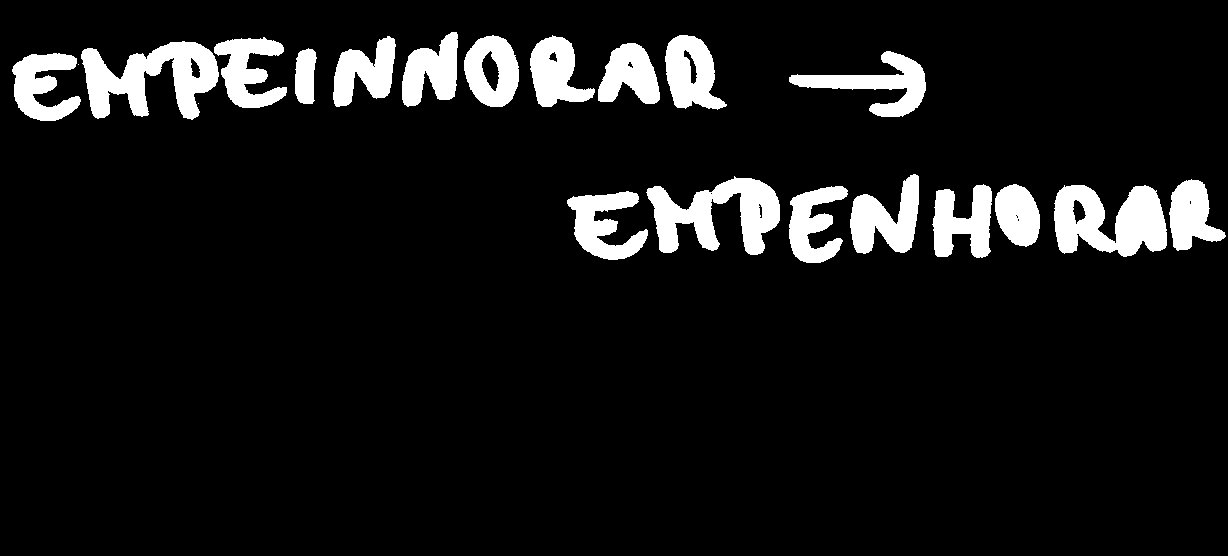 EMPEINNORAR →
EMPENHORAR